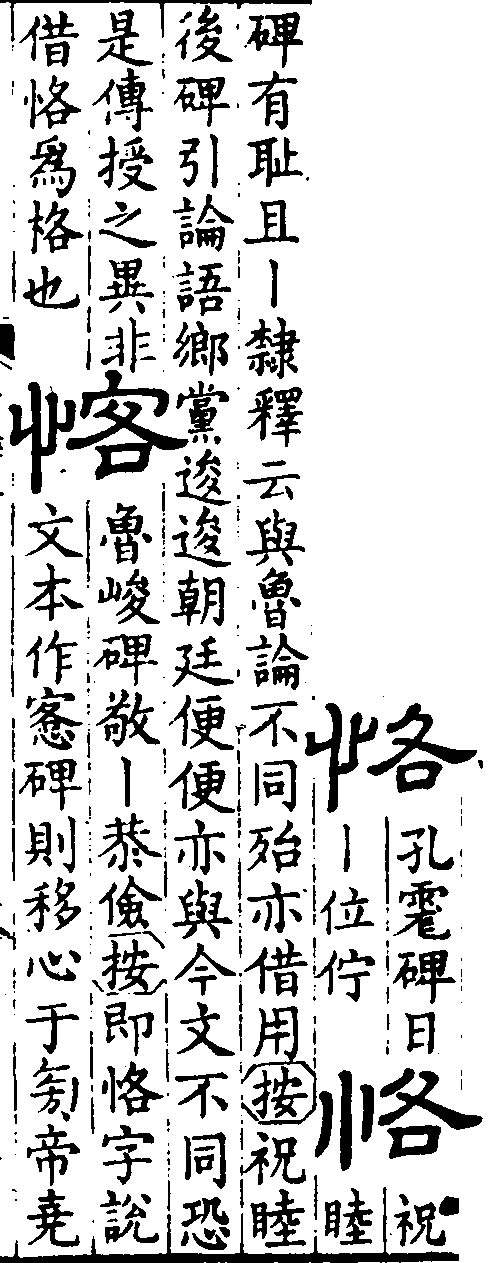 恪
孔碑日
丨位佇
恪
祝
睦
碑有恥且丨隸釋云與魯論不同殆亦借用按祝睦
後碑引論語鄉黨逡逡朝廷便便亦與今文不同恐
是傳授之異非
借恪爲格也
愘
魯峻碑敬丨恭儉按即恪字說
文本作愙碑則移心于旁帝堯